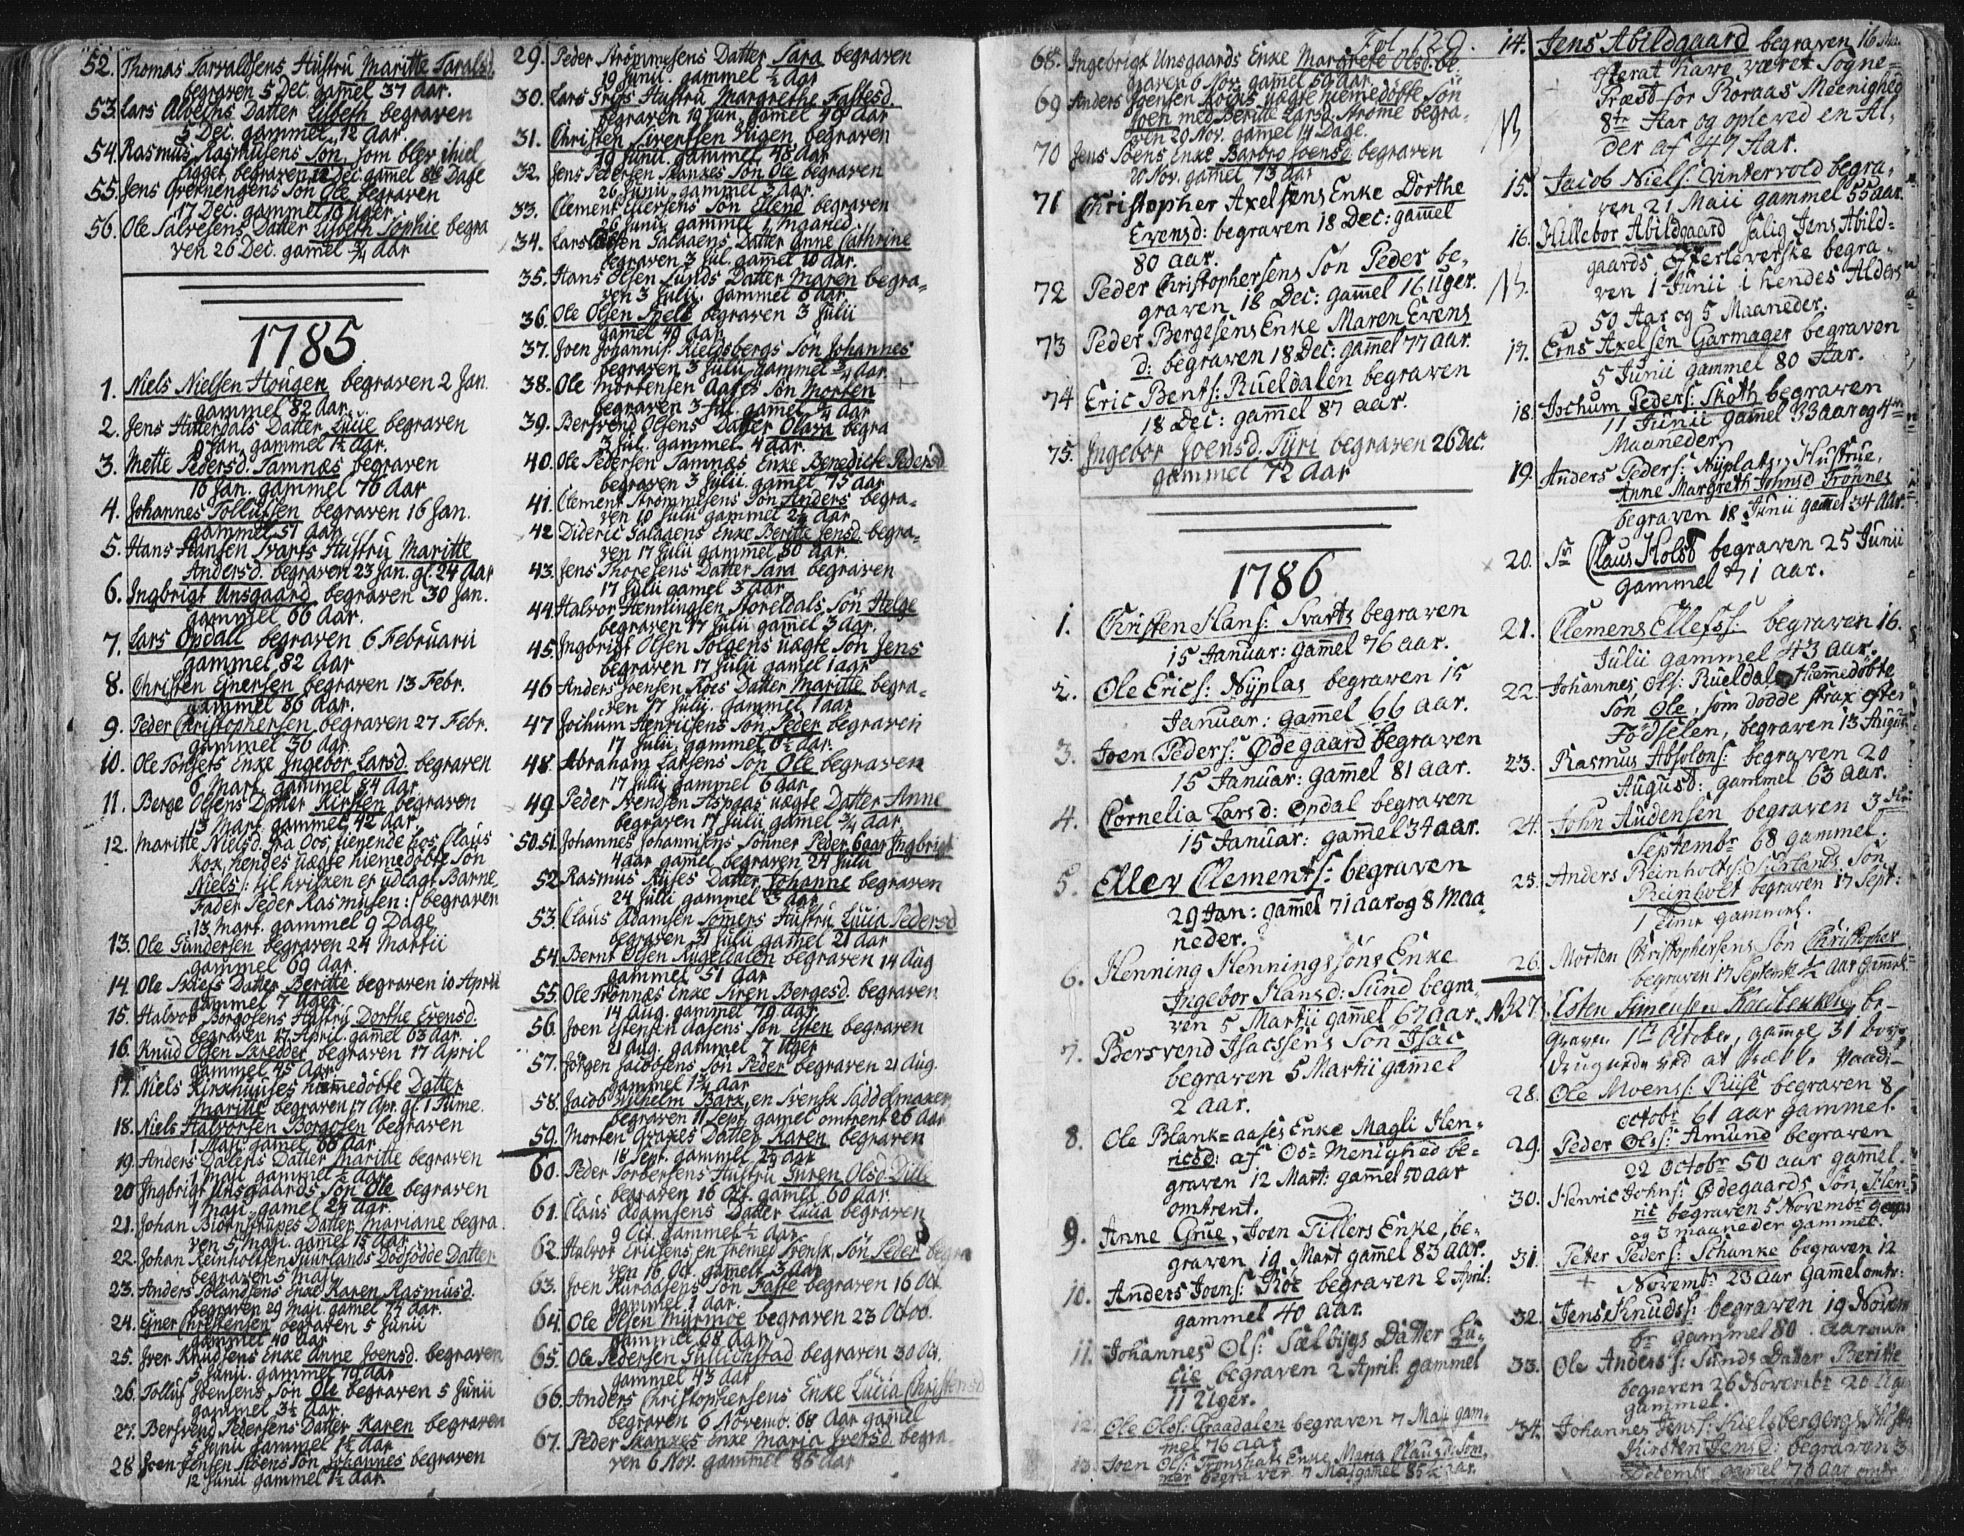 52. Thomas Tarvaldsens Hustru Maritte Taralsd.
begraven 5 Dec. gammel 37 aar.
53. Lars Albechs Datter Lisbeth begraven
5 Dec. gammel 12 aar.
54. Rasmus Rasmusens Son, som blev ihiel
ligget, begraven 12 Dec. gamel 8te Dage
55. Jens Overhengens Son Ole begraven
17 Dec. gammel 10 uger.
56. Ole Salvesens Datter Lisbeth Sophie begra
ven 26 Dec. gamel ¾ aar
1785
1. Niels Nielsen Hougen begraven 2 Jan.
gammel 82 aar.
2. Jens Hitterdals Datter Lucie begraven
9 Jan. gammel 1½ aar.
3. Mette Pedersd. Tamnæs begraven
16 Jan. gammel 76 aar
4. Johannes Tollufsen begraven 16 Jan.
gammel 51 aar.
5. Hans Hansen Svarts Hustru Maritte
Andersd. begraven 23 Jan. gl. 24 aar
6. Ingbrigt Unsgaard begraven 30 Jan.
gammel 66 aar.
7. Lars Opdall begraven 6 Februarii
gammel 82 aar
8. Christen Ejnersen begraven 13 Febr.
gammel 86 aar.
9. Peder Christophersen begraven 27 Febr.
gammel 56 aar.
10. Ole Tonsets Enke Ingebor Larsd. begraven
6 Mart. gammel 84 aar.
11. Berge Olsens Datter Kirsten begraven
13 Mart. gammel 42 aar.
12. Maritte Nielsd. fra Oos, tienende hos Claus
Kok, hendes uægte hiemedøbte Son
Niels /: til hvilken er udlagt Barne-
Fader Peder Rasmusen :/ begraven
13 Mart. gammel 9 Dage
13. Ole Gundersen begraven 24 Martii
gammel 69 aar.
14. Ole Skiefs Datter Beritte begraven 10 April
gammel 7 uger.
15. Halvor Borgosens Hustru Dorthe Evensd.
begraven 17 April. gamel 63 aar.
16. Knud Olsen Skredder begraven 17 April
gammel 45 aar
17. Niels Kirkhuuses hiemmedöbte Datter
Maritte begraven 17 Apr. gl. 1 Time.
18. Niels Halvorsen Borgosen begraven
1 Maji gamel 68 aar
19. Anders Dalens Datter Maritte begraven
1 Maji gammel ½ aar
20 Ingbrigt Unsgaards Son Ole begraven
1 Maji gamel 2½ aar.
21. Johan Biornstrupes Datter Mariane begra
ven 5 Maji. gamel 15 aar.
22. Johan Reinholtsen Juurlands Dodfödde Datter
begraven 5 Maji
23. Anders Tolandsens Enke Karen Rasmusd.
begraven 29 Maji. gamel 72 aar.
24. Ejner Christensen begraven 5 Junii
gammel 40 aar
25. Iver Knudsens Enke Anne Joensd. begraven
5 Junii. gammel 79 aar
26. Tolluf Joensens Son Ole begraven 5 Junii
gammel 3½ aar.
27. Bersvend Pedersens Datter Karen begraven
5 Junii gammel 1½ aar
28 Joen Jensen Moens Son Johannes begraven
12 Junii gammel 1½ aar.
29. Peder Strømmesens Datter Sara begraven
19 Junii. gammel ½ aar
30. Lars Friis Hustru Margrethe Fastesd.
begraven 19 Jun. gamel 49 aar
31. Christen Sivertsen Vigen begraven
19 Junii. gammel 48 aar
32. Jens Pedersen Skankes Son Ole begraven
26 Junii gammel 3 aar.
33. Clement Ellersens Son Ellend begraven
26 Junii gammel 1 Maaned.
34. Lars Galaaens Datter Anne Cathrine
begraven 3 Jul. gamel 10 aar.
35. Hans Olsen Lunds Datter Maren begra-
ven 3 Julii. gammel 8 aar
36. Ole Olsen Spell begraven 3 Julii
gamel 49 aar
37. Joen Johannis. Kieldsbergs Son Johannes
begraven 3 Julii gammel ¾ aar
38. Ole Mortensen Aases Son Morten
begraven 3 Jul. gamel ¼ aar
39. Bersvend Olsens Datter Olava begra
3 Jul. gammel 4 aar.
40. Ole Pedersen Tamnæs Enke Benedicte Pedersd
begraven 3 Julii. gamel 75 aar
41. Clement Strömmesens Son Anders begra-
ven 10 Julii gammel 2½ aar
42 Dideric Galaaens Enke Beritte Jensd. begra-
ven 17 Julii gammel 80 aar.
43. Jens Thoresens Datter Sara begraven
17 Julii gammel 3 aar
44 Halvor Hemmingsen Storeldals Sön Helge
begraven 17 Julii gamel 3 aar.
45. Ingbrigt Olsen Solgens uægte Son Jens
begraven 17 Julii gamel 1 aar
46 Anders Joensen Roes Datter Maritte begra-
ven 17 Julii. gammel 1 aar
47 Jochum Henricsens Son Peder begraven
17 Julii gammel 6½ aar.
48 Abraham Larsens Son Ole begraven
17 Julii gammel 6 aar
49 Peder Svendsen Aspaas uægte Datter Anne
begraven 17 Julii gamel ¾ aar
50. 51. Johannes Johannisens Sönner Peder 6 aar Ingbrigt
4 aar gamel begraven 24 Julii
52 Rasmus Ryses Datter Johanne begraven
24 Julii gammel 3 aar
53. Claus Adamsen Somers Hustru Lucia Pedersd
begraven 31 Julii gamel 21 aar
54. Bernt Olsen Rugeldalen begraven 14 Aug
gammel 51 aar
55. Ole Tronnæs Enke Siren Bergesd. begraven
14 Aug. gammel 79 aar.
56. Joen Estensen Aasens Son Esten begraven
21 Aug. gammel 7 uger
57. Jörgen Jacobsens Son Peder begraven 21 Aug.
gammel 1¾ aar
58. Jacob Wilhelm Bark, en Svensk Saddelmaker
begraven 11 Sept. gamel omtrent 26 aar
59. Morten Grakes Datter Karen begraven
18 Sept. gammel 2½ aar
60. Peder Torbersens Hustru Guren Olsd. Dille
begraven 16 Oct. gamel 60 aar.
61. Claus Adamsens Datter Lucia begraven
9 Oct. gammel ½ aar.
62. Halvor Ericsens, en fremed Svensk, Sön Peder begra
ven 16 Oct. gamel 3 aar
63. Joen Kurdasens Son Faste begraven 16 Oct
gammel 1 aar.
64. Ole Olsen Myrmoe begraven 23 Octob.
gammel 68 aar
65. Ole Pedersen Gullichstad begraven 30 Oct.
gammel 43 aar
66. Anders Christophersens Enke Lucia Christensd
begraven 6 Novemb. 68 aar gamel
67. Peder Skankes Enke Maria Iversd. begra-
ven 6 Nov. gammel 85 aar
Fol. 129.
68. Ingebrigt Unsgaards Enke Margrete Olsd. be
graven 6 Nov. gamel 59 aar.
69 Anders Joensen Roeis uægte hiemedøbte Son
Joen med Beritte Larsd. Strøme begra-
ven 20 Nov. gamel 14 Dage.
70 Jens Moens Enke Barbro Joensd. begraven
20 Nov. gamel 73 aar
71 Christopher Axelsens Enke Dorthe
Evensd: begraven 18 Dec: gamel
80 aar.
72 Peder Christophersens Son Peder be-
graven 18 Dec: gamel 16 Uger.
73 Peder Bergesens Enke Maren Evens
d: begraven 18 Dec: gamel 77 aar.
74 Eric Bents: Rueldalen begraven
18 Dec: gamel 87 aar.
75. Ingebor Joensd. Tyri begraven 26 Dec.
gammel 72 Aar
1786
1. Christen Hans: Svarts begraven
15 Januar: gamel 76 aar.
2. Ole Erics: Nyplas begraven 15
Januar: gamel 66 aar.
3. Joen Peders: Ødegaard begraven
15 Januar: gamel 81 aar.
4. Cornelia Larsd: Opdal begraven
15 Januar: gamel 34 aar.
5. Eller Clements: begraven
29 Jan: gamel 71 aar og 8 Maa-
neder.
6. Henning Henningssöns Enke
Ingebor Hansd: Sund begra-
ven 5 Martii gamel 67 aar.
7. Bersvend Isacsens Son Isac
begraven 5 Martii gamel
2 aar.
8. Ole Blank-aases Enke Magli Hen-
ricsd: af Oos Menighed be-
graven 12 Mart: gamel 50 aar
omtrent.
9. Anne Grue, Joen Tillers Enke, be-
graven 19 Mart gamel 83 aar.
10. Anders Joens: Röe begraven 2 April:
gammel 40 aar.
11. Johannes Ols: Sælbijgs Datter Lu-
cie begraven 2 April. gammel
11 Uger.
12. Ole Ols: Graadalen begraven 7 Maji gam-
mel 76 aar
13. Joen Ols: Tronshats Enke Maria Clausd: Som-
mer begraven 7 Maj gamel 85¼ aar.
14. Jens Abildgaard begraven 16 Ma.
efterat have været Sogne-
Præst for Roraas Meenighed
8te Aar og opleved en Al-
der af 47 Aar.
NB
15. Jacob Niels: Vintervold begra-
ven 21 Maii gammel 55 aar.
16. Hillebor Abildgaard salig Jens Abild-
gaards efterleverske begra-
ven 1 Junii i hendes Alders
50 Aar og 5 Maaneder.
NB.
17. Erns Axelsen Garmager begraven
5 Junii gammel 80 Aar.
18. Jochum Peders: Skoth begraven
11 Junii gamel 33 aar og 4re
Maaneder
19. Anders Peders: Nyplats, Hustrue,
Anne Margreth Johnsd Trönnes
begraven 18 Junii gamel 34 Aar.
20. Sr. Claus Holst begraven 25 Junii
gammel 71 aar.
21. Clemens Ellefss: begraven 16.
Julii gammel 43 aar.
22. Johannes Ols: Rueldals Hiemmedøbte
Son Ole, som dødde strax efter
Fodselen, begraven 13 August
23. Rasmus Absolons: begraven 20
August: gammel 63 aar.
24. John Audensen begraven 3die
Septembr 68 gammel.
25. Anders Reinholts: Juurlands Son
Reinholt begraven 17 Sept:
1 Time gammel.
26. Morten Christophersens Son Christopher
begraven 17 Septembr ¼ Aar gammel
NB 27. Esten Simensen be-
graven 1te October, gammel 31
28. Ole Moens: Riise begraven 8
octobr 61 aar gammel.
29. Peder Ols: Amund begraven
22 octobr 50 aar gamel.
30. Henric Johns: Ødegaards Søn Hen-
ric begraven 5 Novembr
og 3 maaneder gammel.
31. Peter Peders: Schanke begraven 12
Novembr 23 aar gamel omtr:
32. Jens Knuds: begraven 19 Novem
br gammel 80 aar omtr
33. Ole Anders: Sunds Datter Beritte
begraven 26 Novembr 20 Uger
gammel.
34. Johannes Jens: Kielsbergergs Hustru
Kirsten Jensd: begraven 3
Decembr gamel 70 aar omtr